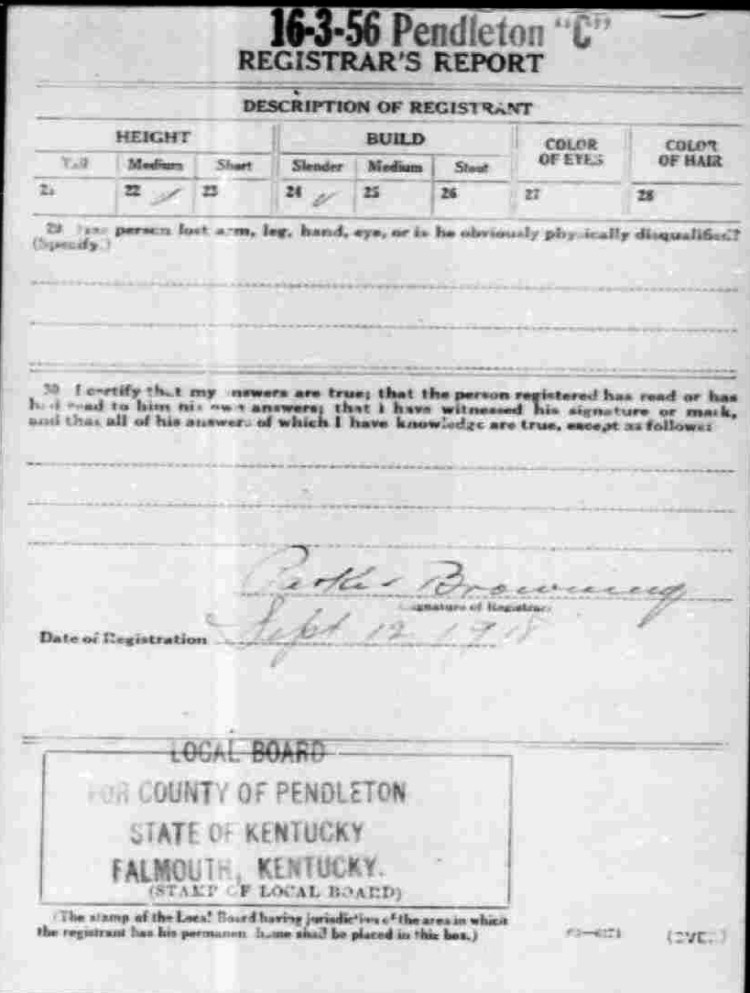 16-3-56 Pendleton "C"
REGISTRAR'S REPORT
DESCRIPTION OF REGISTRANT
HEIGHT BUILD COLOR OF EYES COLOR OF HAIR
Tall Medium Short Slender Medium Stout
21 22 ✓ 23 24 ✓ 25 26 27 28
29 Has person lost arm, leg, hand, eye, or is he obviously physically disqualified?
(Specify.)
30 I certify that my answers are true; that the person registered has read or has
had read to him his own answers; that I have witnessed his signature or mark,
and that all of his answers of which I have knowledge are true, except as follows:
Parker Browning
Signature of Registrar
Date of Registration Sept 12 1918
LOCAL BOARD
FOR COUNTY OF PENDLETON
STATE OF KENTUCKY
FALMOUTH, KENTUCKY.
(STAMP OF LOCAL BOARD)
(The stamp of the Local Board having jurisdiction of the area in which
the registrant has his permanent home shall be placed in this box.)
(OVER)